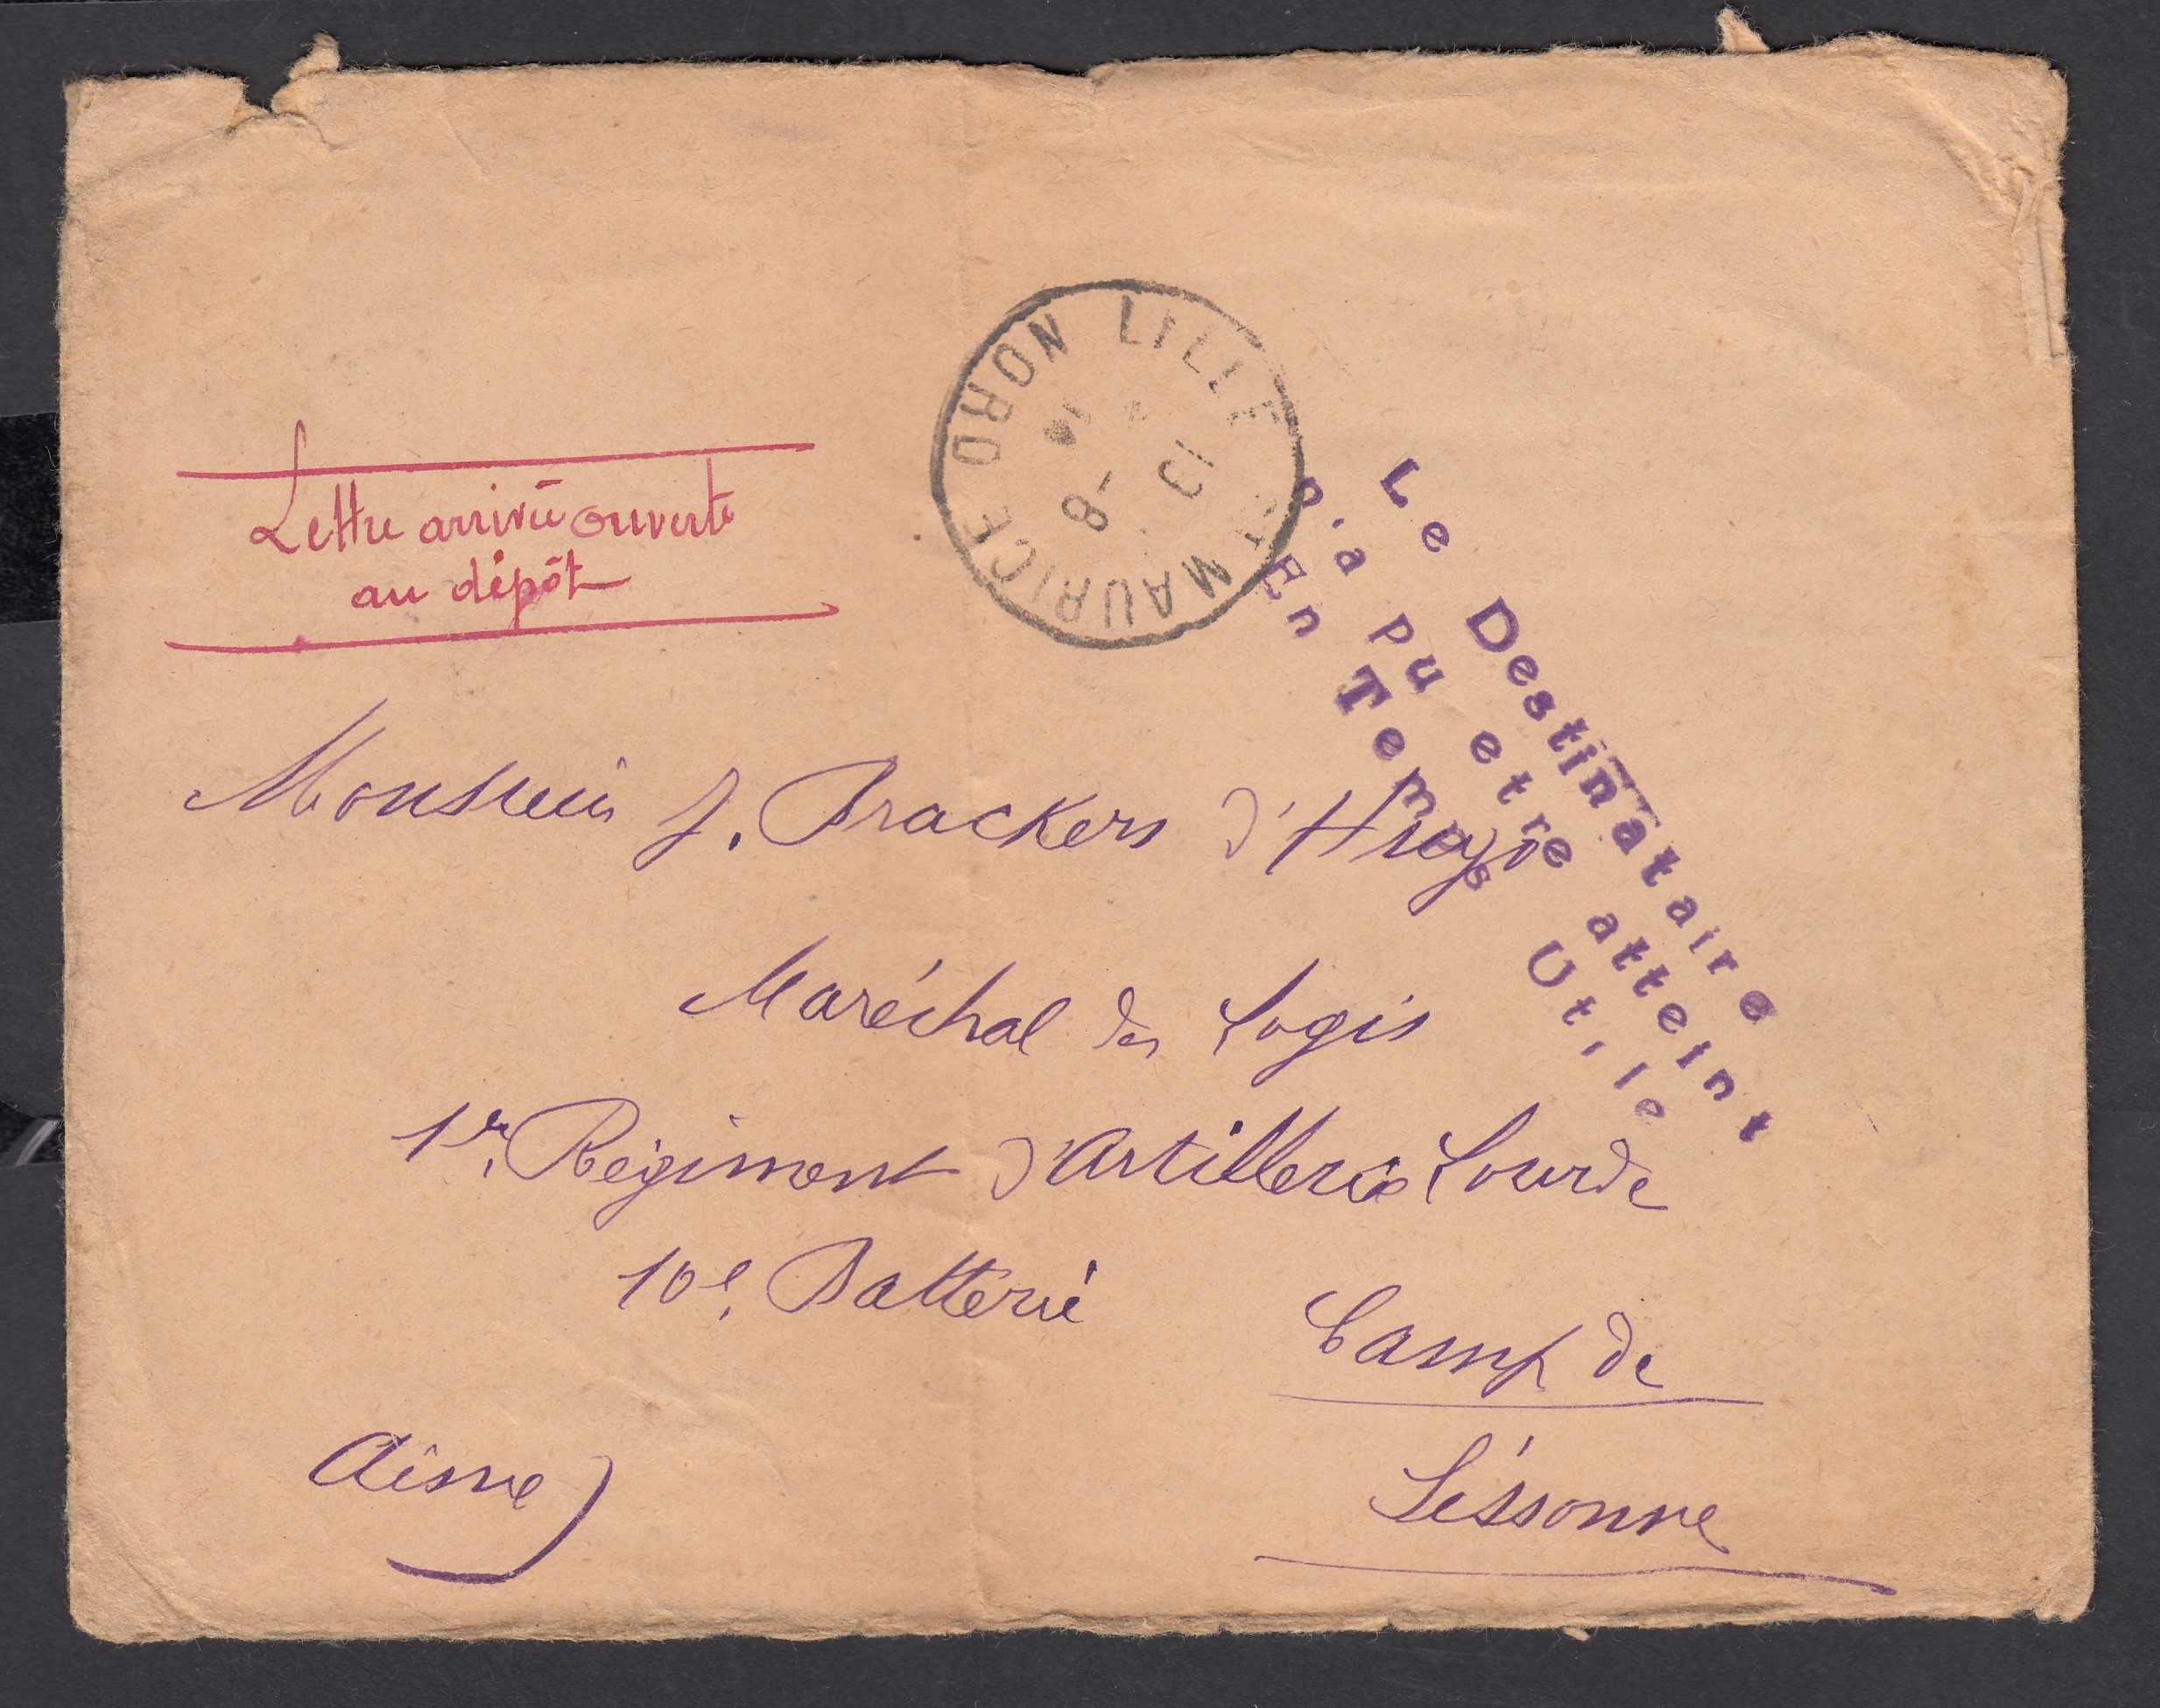 LILLE ST MAURICE NORD
13 - 8
14
Le Destinataire
n'a pu etre atteint
En Temps Utile
Lettre arrivée ouverte
au dépôt
Monsieur J. Brackers d'Hugo
Maréchal des Logis
1er. Régiment d'Artillerie Lourde
10e. Batterie
Camp de
Sissonne
Aisne)